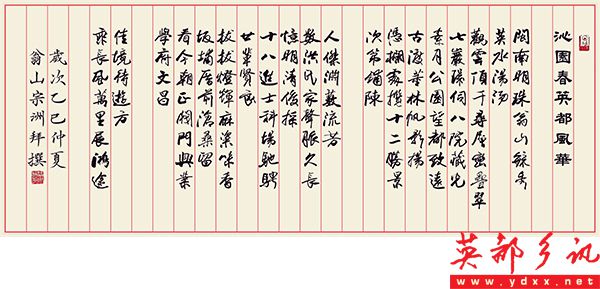 沁園春英都風華
閩南明珠翁山秀
英水湯湯
觀雲頂千層巒疊翠
七八院藏光
素月公園望都致遠
古渡林帆影揚
憑欄處攬十二勝景
次第鋪陳
人傑淵藪流芳
數洪氏家聲脈久長
憶明清俊採
十八進士科場馳騁
拔拔燈輝麻粢味香
廿輩賢良
坂埔厝前滄桑留
看今朝正門興業
學府文昌
佳境待遊方
乘長風萬里展鴻途
歲次乙巳仲夏
翁山宗洲拜撰
英都乡讯
www.ydxx.net